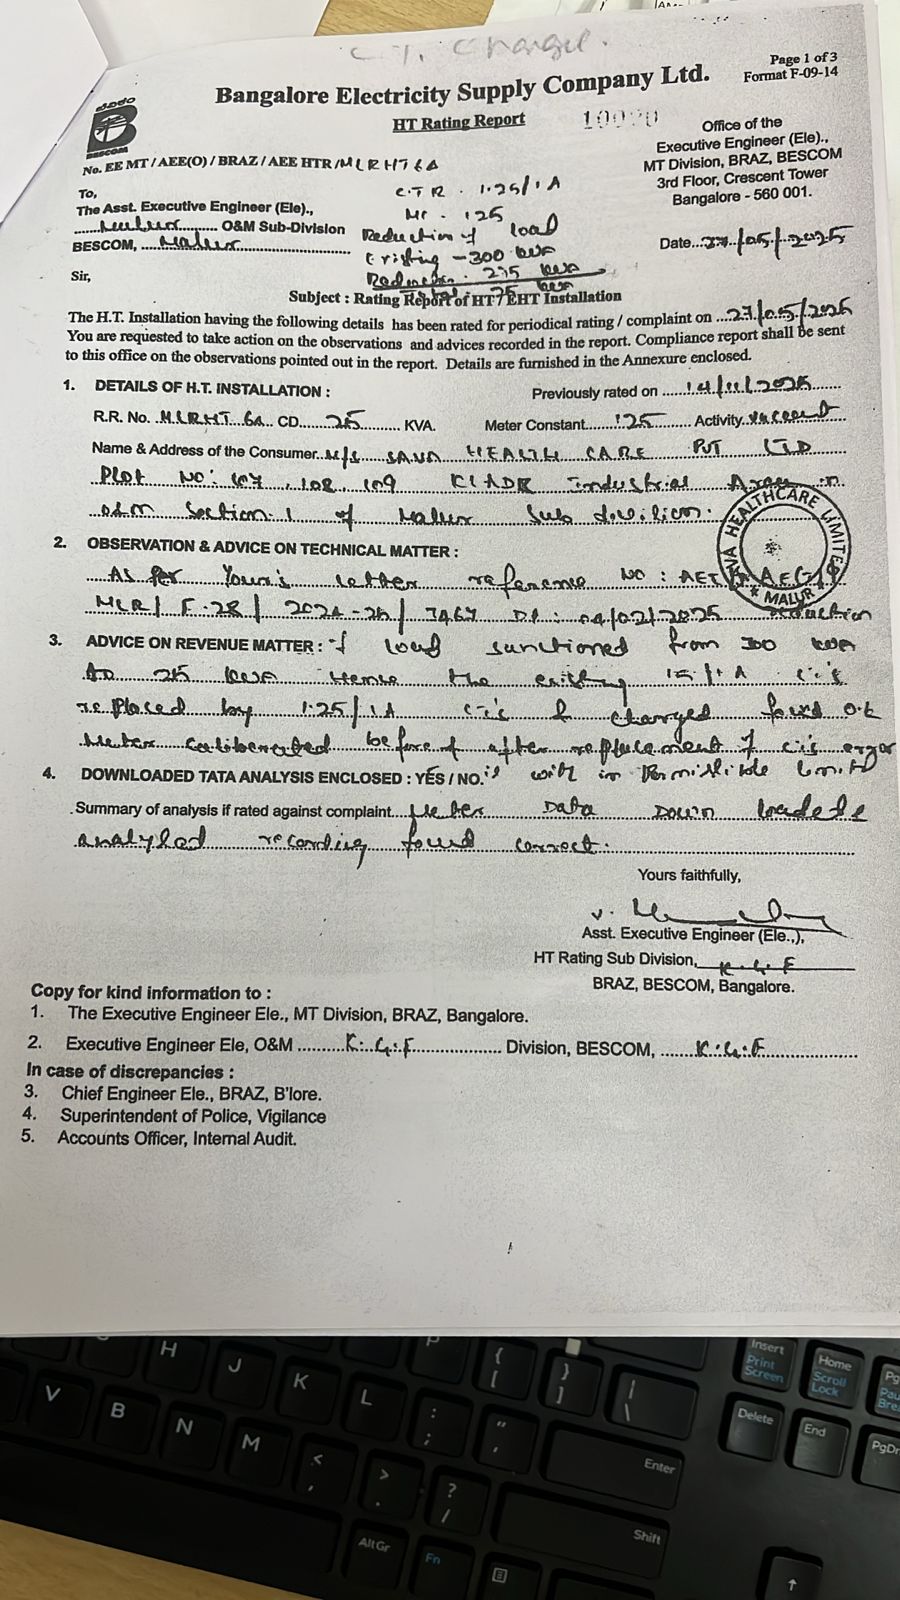 C.T. Changed.
Page 1 of 3
Format F-09-14
Bangalore Electricity Supply Company Ltd.
HT Rating Report
BESCOM
No. EE MT / AEE(O) / BRAZ / AEE HTR / MLRHT 6A
Office of the
Executive Engineer (Ele).,
MT Division, BRAZ, BESCOM
3rd Floor, Crescent Tower
Bangalore - 560 001.
To,
The Asst. Executive Engineer (Ele).,
O&M Sub-Division
BESCOM, Malur
C.T.R. 1.25/1A
MC. 125
Reduction of load
Existing - 300 KVA
Reduction. 275 KVA
25 KVA
Date 27/05/2025
Sir,
Subject : Rating Report of HT / EHT Installation
The H.T. Installation having the following details has been rated for periodical rating / complaint on 27/05/2025
You are requested to take action on the observations and advices recorded in the report. Compliance report shall be sent
to this office on the observations pointed out in the report. Details are furnished in the Annexure enclosed.
1. DETAILS OF H.T. INSTALLATION : Previously rated on 14/11/
R.R. No. MLRHT 6A CD 25 KVA. Meter Constant 125 Activity
Name & Address of the Consumer M/s SAVA HEALTH CARE PVT LTD
Plot No: 107, 108, 109 KIADB Industrial Area in
O&M Section-1 of Malur Sub division.
SAVA HEALTHCARE LIMITED
MALUR
2. OBSERVATION & ADVICE ON TECHNICAL MATTER :
As per Your's letter reference NO :
MLR / F-28 / 2024-25 / 3467 Dt : 04/02/2025 reduction
3. ADVICE ON REVENUE MATTER : of load sanctioned from 300 KVA
to 25 KVA Hence the existing 15/1A CT's
replaced by 1.25/1A CT's & charged found O.K
Meter caliberated before & after replacement of CT's error
4. DOWNLOADED TATA ANALYSIS ENCLOSED : YES / NO. is with in Permissible limit
Summary of analysis if rated against complaint Meter Data Down loaded &
analysed recording found correct.
Yours faithfully,
Asst. Executive Engineer (Ele.,),
HT Rating Sub Division, K.G.F
BRAZ, BESCOM, Bangalore.
Copy for kind information to :
1. The Executive Engineer Ele., MT Division, BRAZ, Bangalore.
2. Executive Engineer Ele, O&M K.G.F Division, BESCOM, K.G.F
In case of discrepancies :
3. Chief Engineer Ele., BRAZ, B'lore.
4. Superintendent of Police, Vigilance
5. Accounts Officer, Internal Audit.
H J K L P { [ } ] | \ Insert Print Screen Home Scroll Lock
V B N M : ; " ' Enter Delete End PgDn
< , > . ? / Shift
AltGr Fn